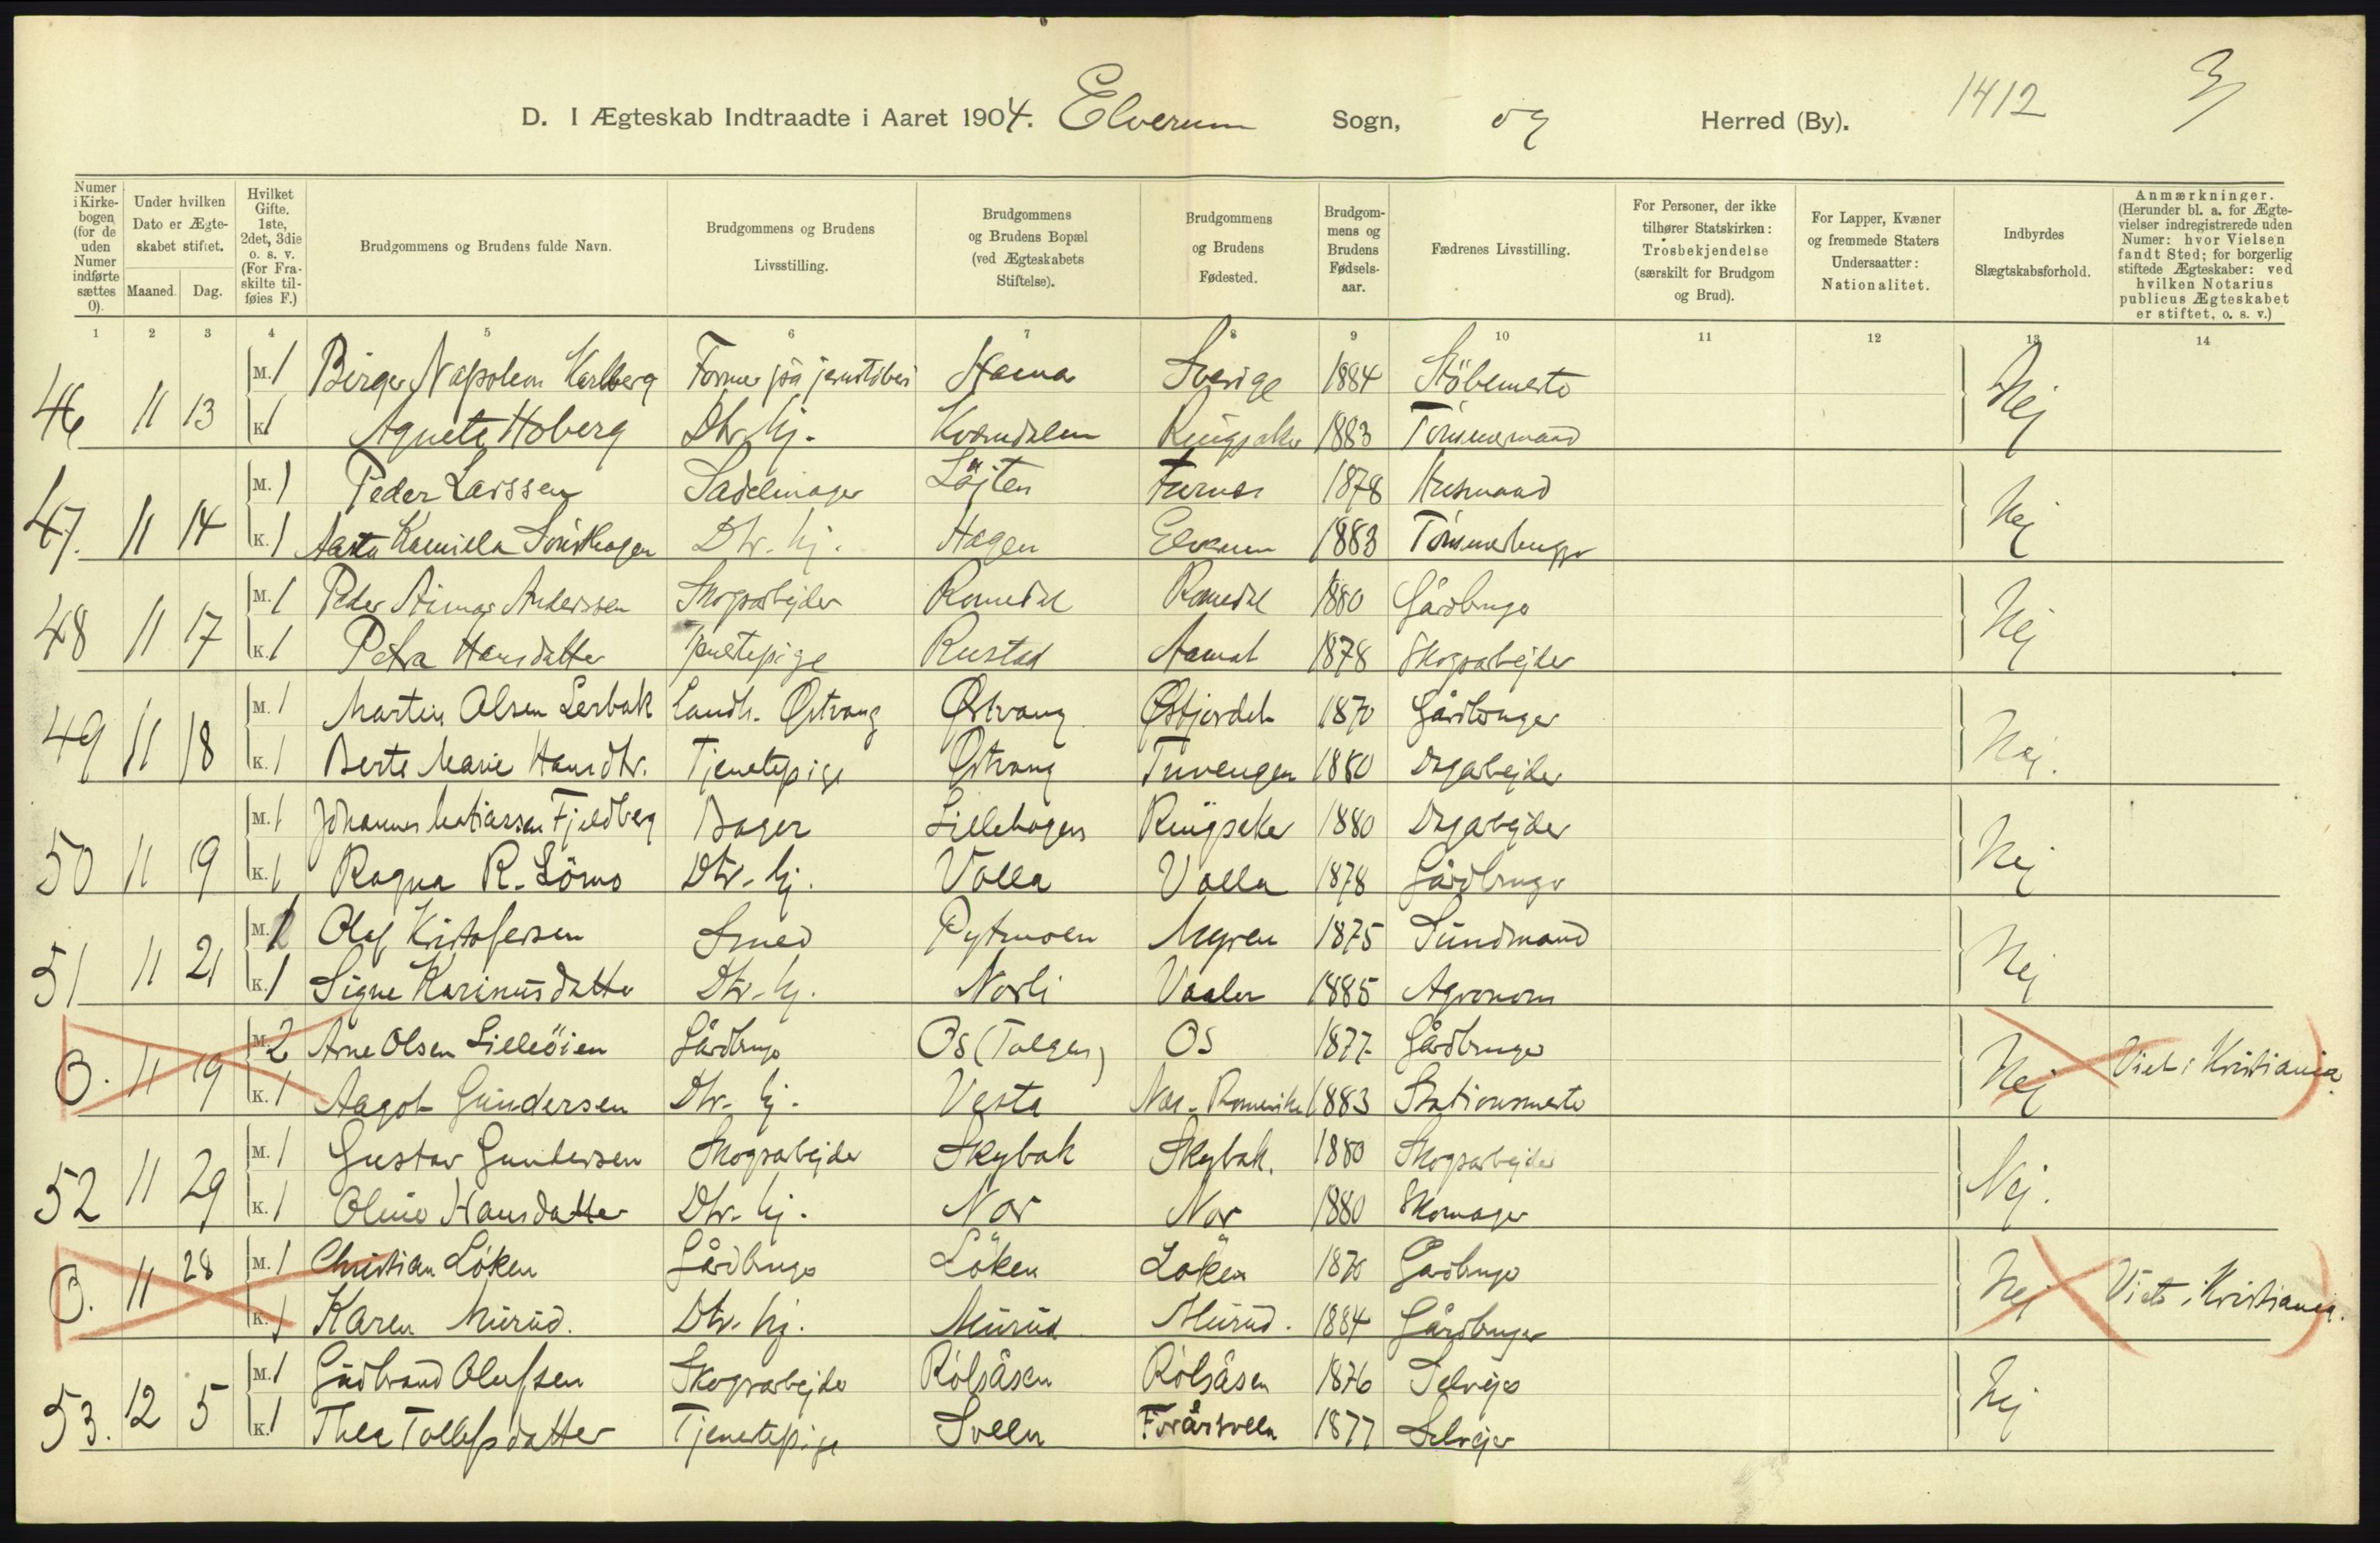 1412
3/
D. I Ægteskab Indtraadte i Aaret 1904. Elverum Sogn, og Herred (By).
Numer i Kirkebogen (for de uden Numer indførte sættes 0).
Under hvilken Dato er Ægteskabet stiftet.
Maaned. Dag.
Hvilket Gifte. 1ste, 2det, 3die o. s. v. (For Fraskilte tilføies F.)
Brudgommens og Brudens fulde Navn.
Brudgommens og Brudens Livsstilling.
Brudgommens og Brudens Bopæl (ved Ægteskabets Stiftelse).
Brudgommens og Brudens Fødested.
Brudgommens og Brudens Fødselsaar.
Fædrenes Livsstilling.
For Personer, der ikke tilhører Statskirken: Trosbekjendelse (særskilt for Brudgom og Brud).
For Lapper, Kvæner og fremmede Staters Undersaatter: Nationalitet.
Indbyrdes Slægtskabsforhold.
Anmærkninger. (Herunder bl. a. for Ægtevielser indregistrerede uden Numer: hvor Vielsen fandt Sted; for borgerlig stiftede Ægteskaber: ved hvilken Notarius publicus Ægteskabet er stiftet, o. s. v.)
1 2 3 4 5 6 7 8 9 10 11 12 13 14
46 11 13 M. 1 Birger Napoleon Karlberg Former på Hamar Sverige 1884 Nej
K. 1 Agnete Hoberg Dtr. hj. Kværndalen Ringsaker 1883 Tömmermand
47. 11 14 M. 1 Peder Larssen Sadelmager Löjten Furnes 1878 Husmand Nej
K. 1 Aasta Kamilla Dtr. hj. Hagen Elverum 1883 Tömmerhugger
48 11 17 M. 1 Peder Anderssen Skogsarbejder Romedal Romedal 1880 Gårdbruger Nej
K. 1 Petra Hansdatter Tjenestepige Rustad Aamot 1878 Skogsarbejder
49 11 18 M. 1 Martin Olsen Lerbak Landh. Østvang Østvang 1870 Gårdbruger Nej.
K. 1 Berte Marie Hansdtr. Tjenestepige Østvang Tuvengen 1880 Dagarbejder
50 11 9 M. 1 Johannes Matiassen Fjeldberg Bager Lillehagen Ringsaker 1880 Dagarbejder Nej
K. 1 Ragna R. Lömo Dtr. hj. Volla Volla 1878 Gårdbruger
51 11 21 M. Olaf Kristofersen Smed Pytmoen Myren 1875 Sundmand Nej
K. 1 Signe Karinusdatter Dtr. hj. Norli Vaaler 1885 Agronom
0. 11 19 M. 2 Arne Olsen Lilleöien Gårdbruger Os (Tolgen) Os 1877 Gårdbruger Nej Viet i Kristiania
K. 1 Aagot Gundersen Dtr. hj. Vesta Nes-Romerike 1883 Stationsmester
52 11 29 M. 1 Gustav Gundersen Skogsarbejder Skybak Skybak. 1880 Skogsarbejder Nej.
K. 1 Oline Hansdatter Dtr. hj. Nor Nor 1880 Skomager
0. 11 28 M. 1 Christian Löken Gårdbruger Löken Löken 1870 Gårdbruger Nej Viet i Kristiania.
K. 1 Karen Murud. Dtr. hj. Murud Murud. 1884 Gårdbruger
53. 12 5 M. 1 Gudbrand Olufsen Skogsarbejder Rolsåsen Rolsåsen 1876 Selvejer Nej
K. 1 Thea Tollefsdatter Tjenestepige Svelen 1877 Selvejer